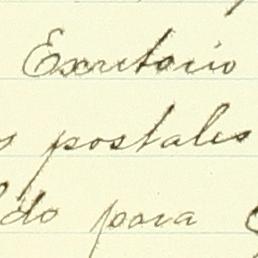 Escritorio
postales
para